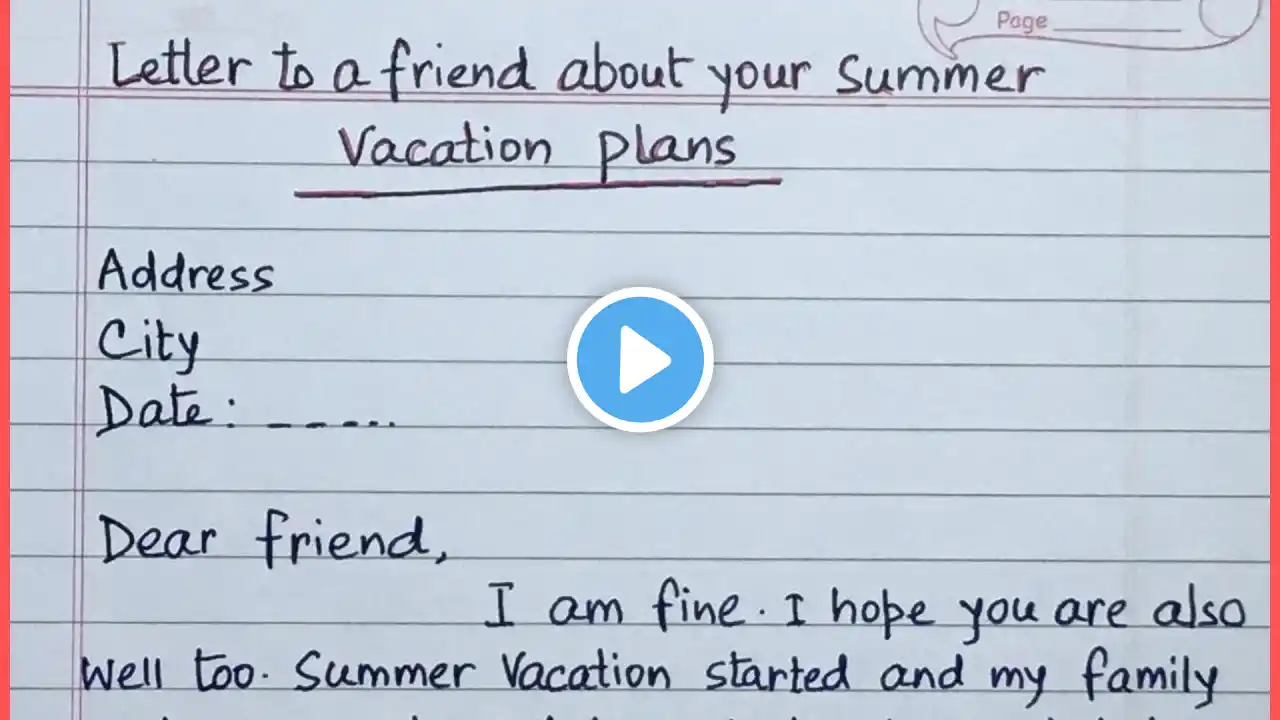 Page
Letter to a friend about your Summer
Vacation plans
Address
City
Date: _ _ _ . . .
Dear friend,
I am fine. I hope you are also
well too. Summer Vacation started and my family